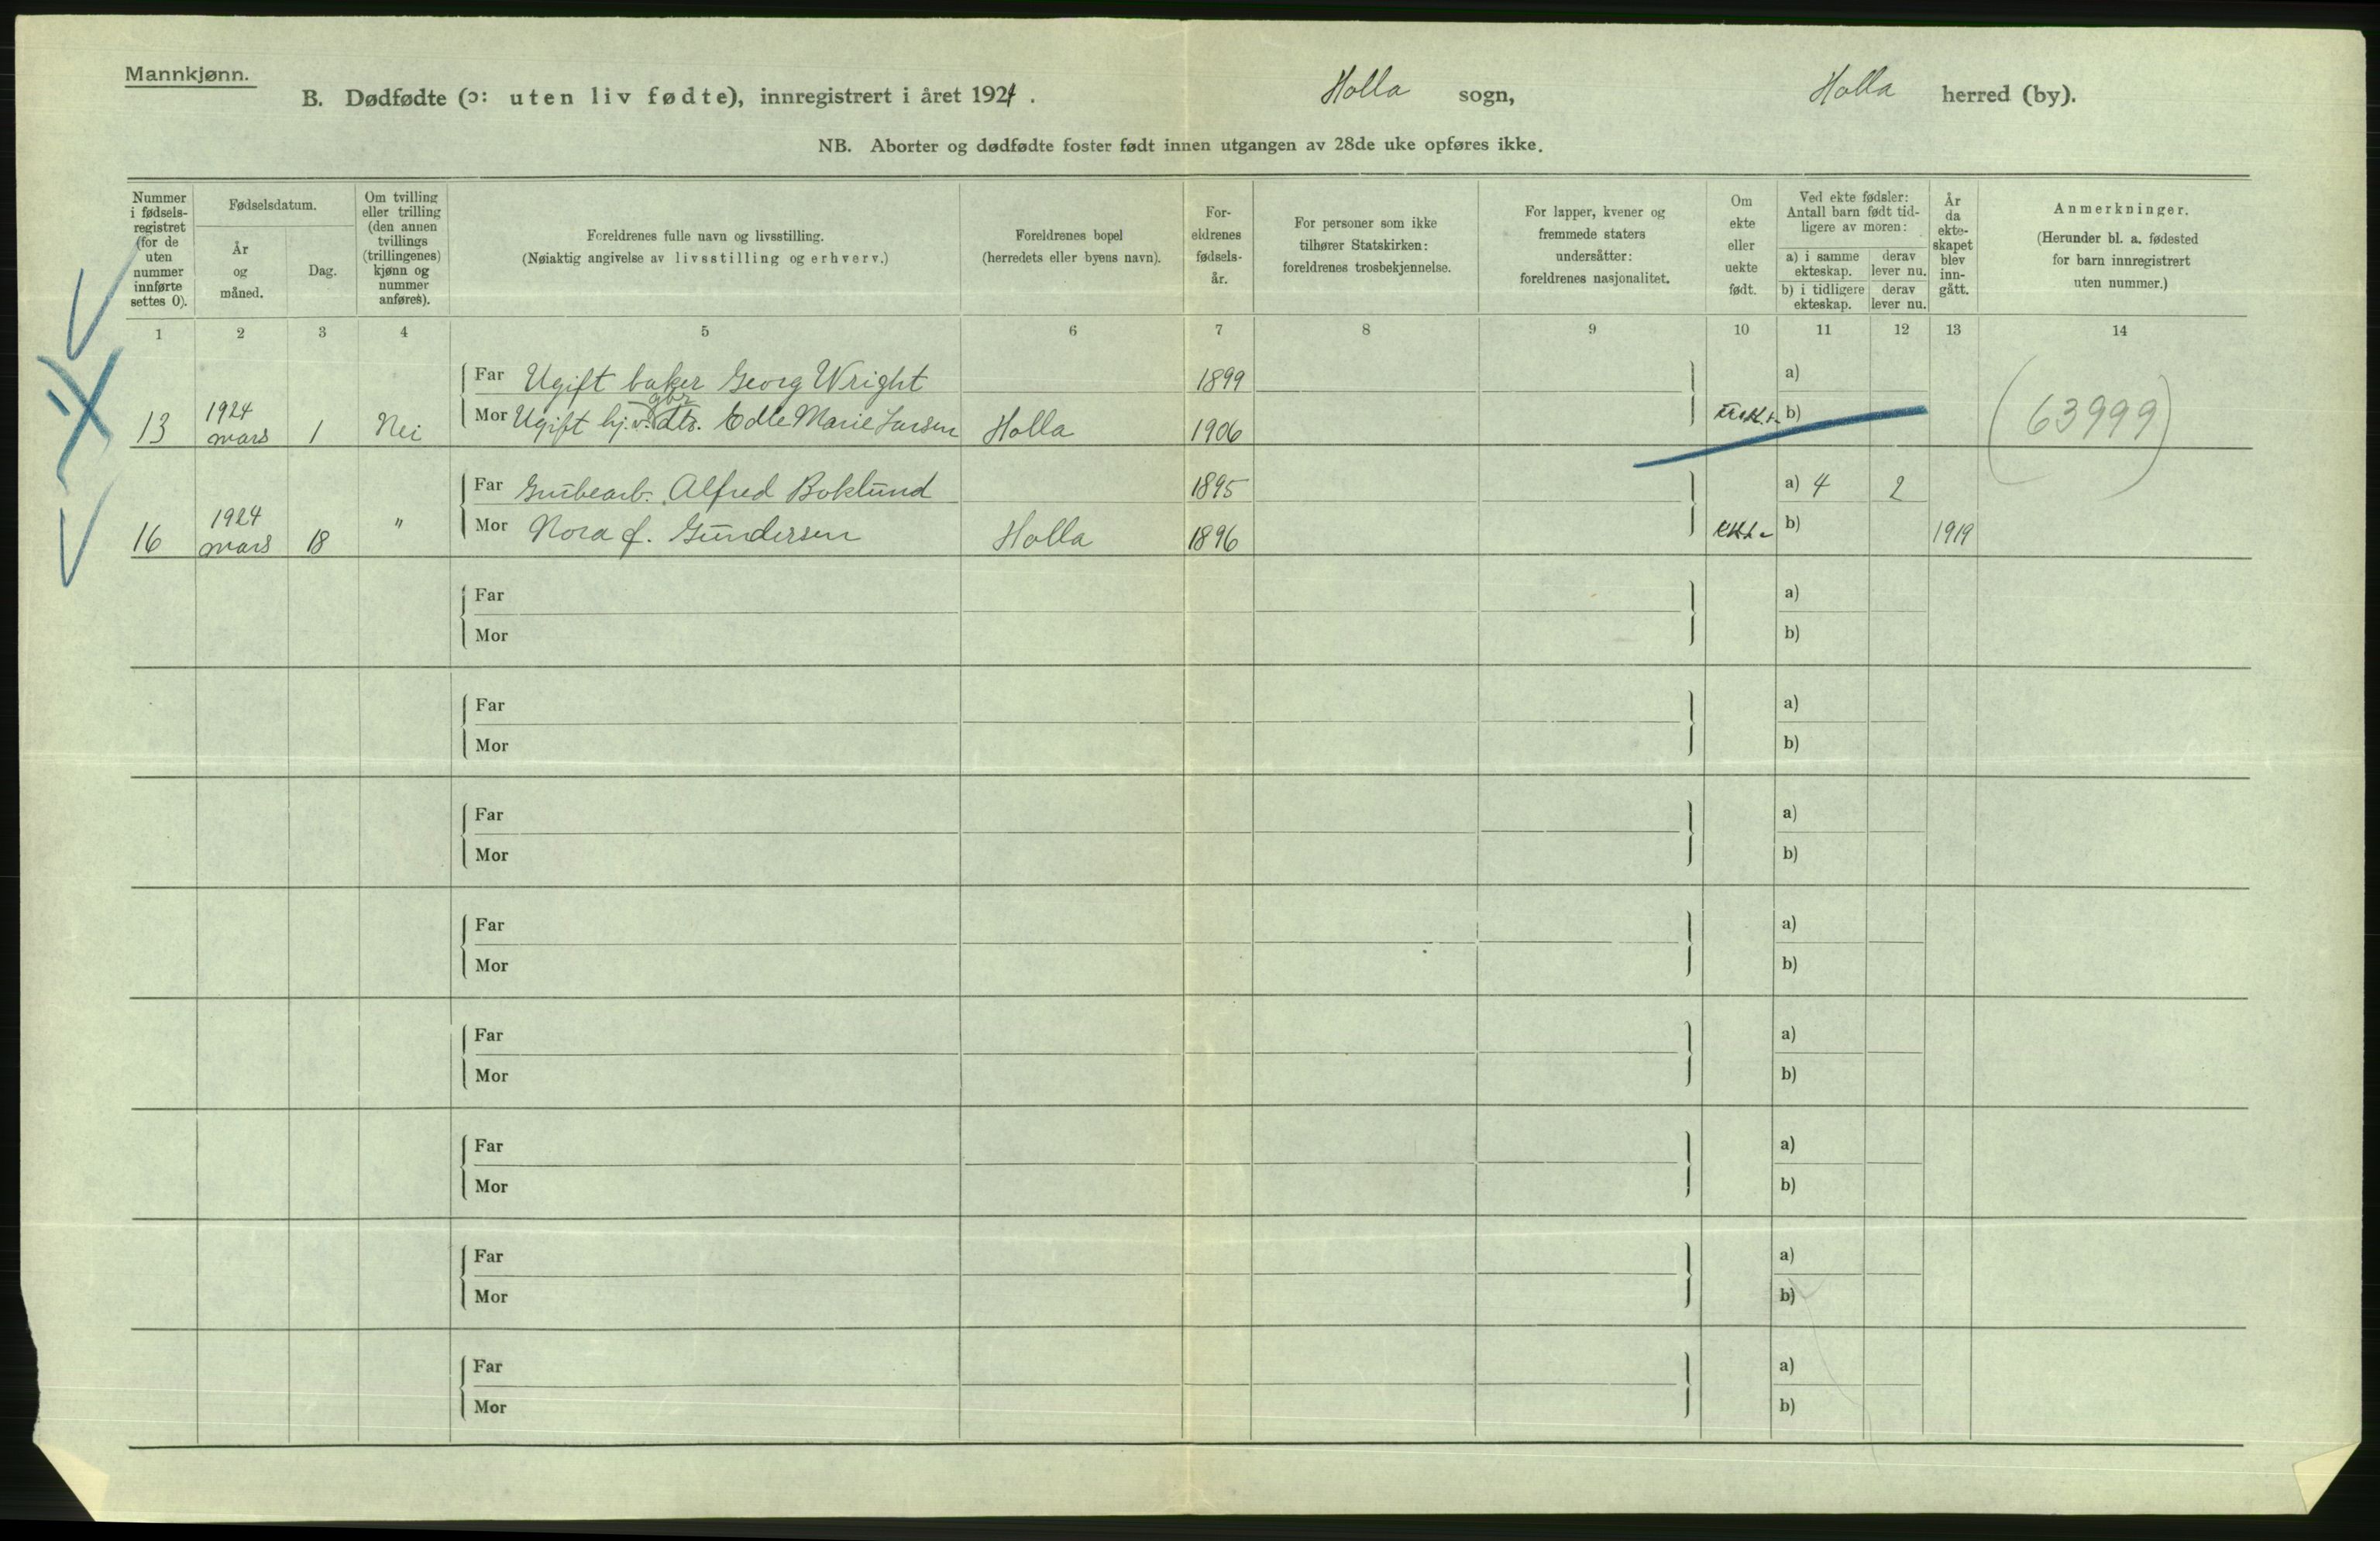 Mannkjønn.
B. Dødfødte (ɔ: uten liv fødte), innregistrert i året 1924.
Holla sogn,
Holla herred (by).
NB. Aborter og dødfødte foster født innen utgangen av 28de uke opføres ikke.
Nummer
i fødsels-
registret
(for de
uten
nummer
innførte
settes 0).
Fødselsdatum.
År
og
måned.
Dag.
Om tvilling
eller trilling
(den annen
tvillings
(trillingenes)
kjønn og
nummer
anføres).
Foreldrenes fulle navn og livsstilling.
(Nøiaktig angivelse av livsstilling og erhverv.)
Foreldrenes bopel
(herredets eller byens navn).
For-
eldrenes
fødsels-
år.
For personer som ikke
tilhører Statskirken:
foreldrenes trosbekjennelse.
For lapper, kvener og
fremmede staters
undersåtter:
foreldrenes nasjonalitet.
Om
ekte
eller
uekte
født.
Ved ekte fødsler:
Antall barn født tid-
ligere av moren:
a) i samme
ekteskap.
derav
lever nu.
b) i tidligere
ekteskap.
derav
lever nu.
År
da
ekte-
skapet
blev
inn-
gått.
Anmerkninger.
(Herunder bl. a. fødested
for barn innregistrert
uten nummer.)
1 2 3 4 5 6 7 8 9 10 11 12 13 14
Far Ugift baker Georg Wright 1899 a)
gbr
13 1924 mars 1 Nei Mor Ugift hj.v. dtr. Edle Marie Larsen Holla 1906 Uekte b) (63999)
Far Grubearb. Alfred Boklund 1895 a) 4 2
16 1924 mars 18 " Mor Nora f. Gundersen Holla 1896 Ekte b) 1919
Far a)
Mor b)
Far a)
Mor b)
Far a)
Mor b)
Far a)
Mor b)
Far a)
Mor b)
Far a)
Mor b)
Far a)
Mor b)
Far a)
Mor b)